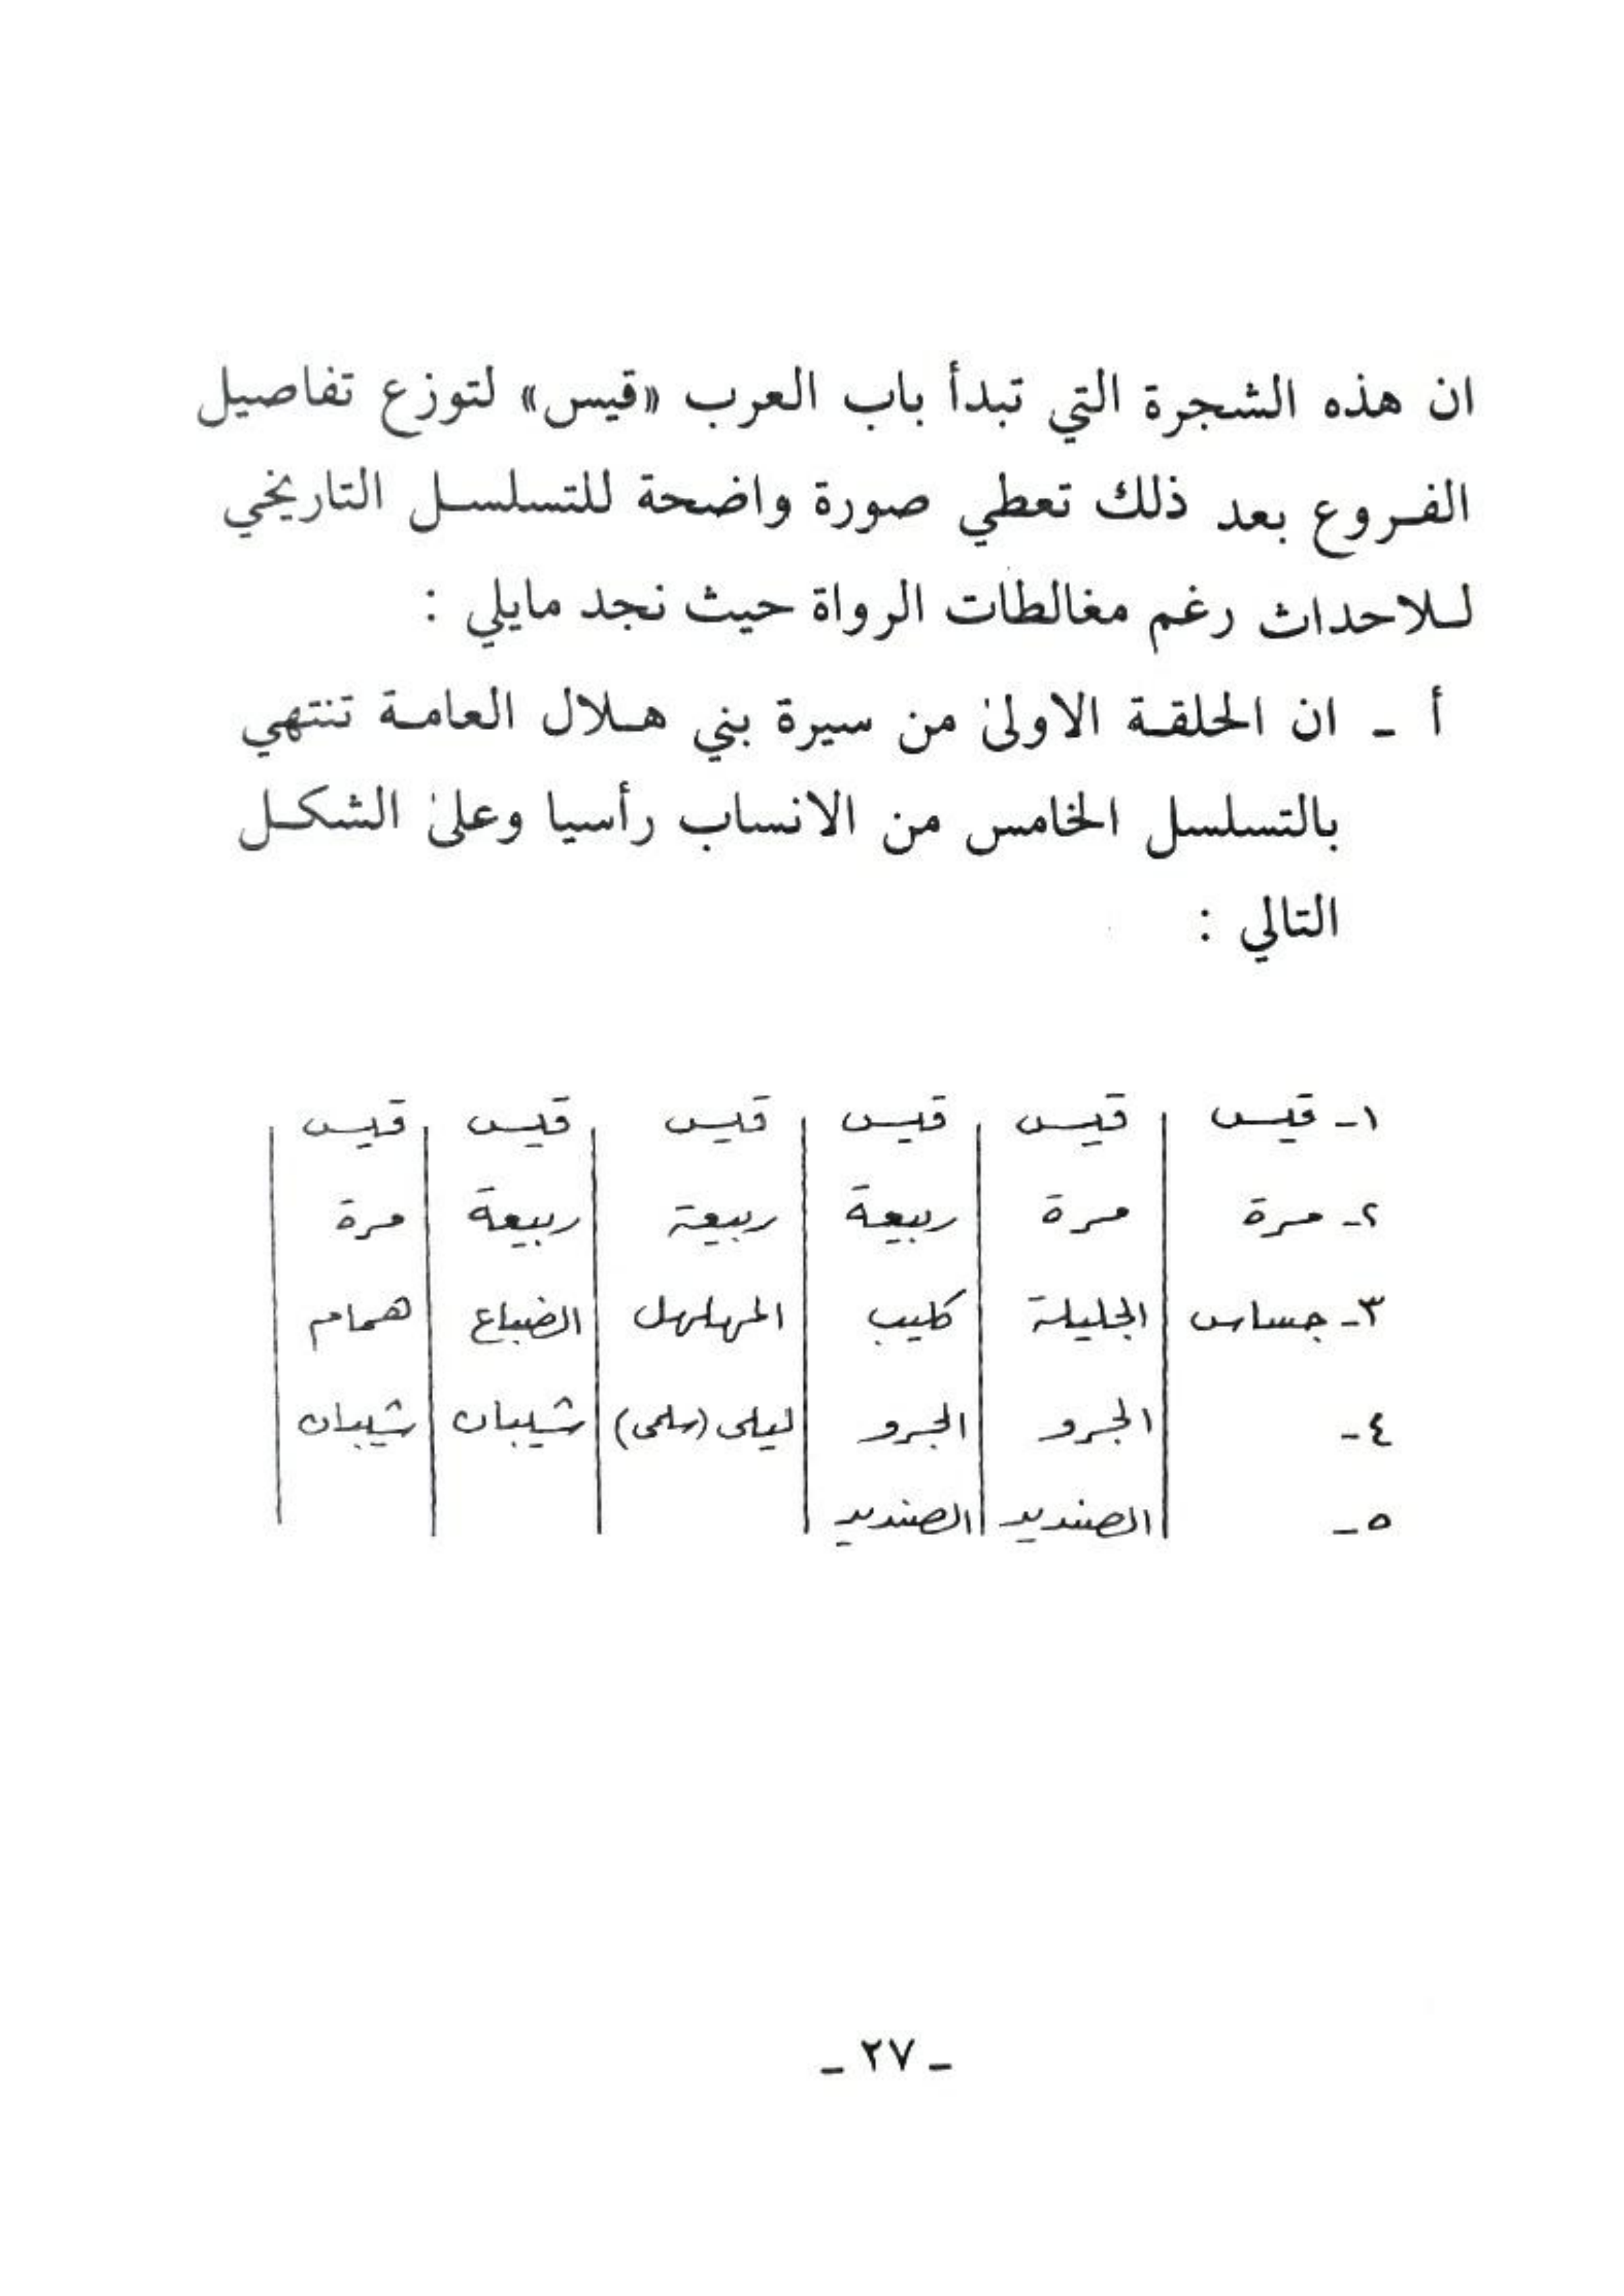 ان هذه الشجرة التي تبدأ باب العرب «قيس» لتوزع تفاصيل
الفروع بعد ذلك تعطي صورة واضحة للتسلسل التاريخي
للاحداث رغم مغالطات الرواة حيث نجد مايلي :
أ - ان الحلقة الاولى من سيرة بني هلال العامة تنتهي
بالتسلسل الخامس من الانساب رأسيا وعلى الشكل
التالي :
١- قيس | قيس | قيس | قيس | قيس | قيس |
٢- مرة | مرة | ربيعة | ربيعة | ربيعة | مرة |
٣- جساس | الجليلة | كليب | المهلهل | الضباع | همام |
٤- | الجرو | الجرو | ليلى (سلمى) | شيبان | شيبان |
٥- | الصنديد | الصنديد | | | |
- ٢٧ -